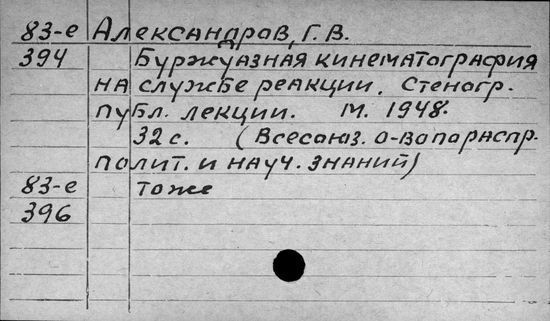 83-е Александров, Г. В.
394 Буржуазная кинематография
на службе реакции. Стеногр.
публ. лекции. М. 1948.
32 с. (Всесоюз. о-во по распр.
полит. и науч. знаний)
83-е тоже
396